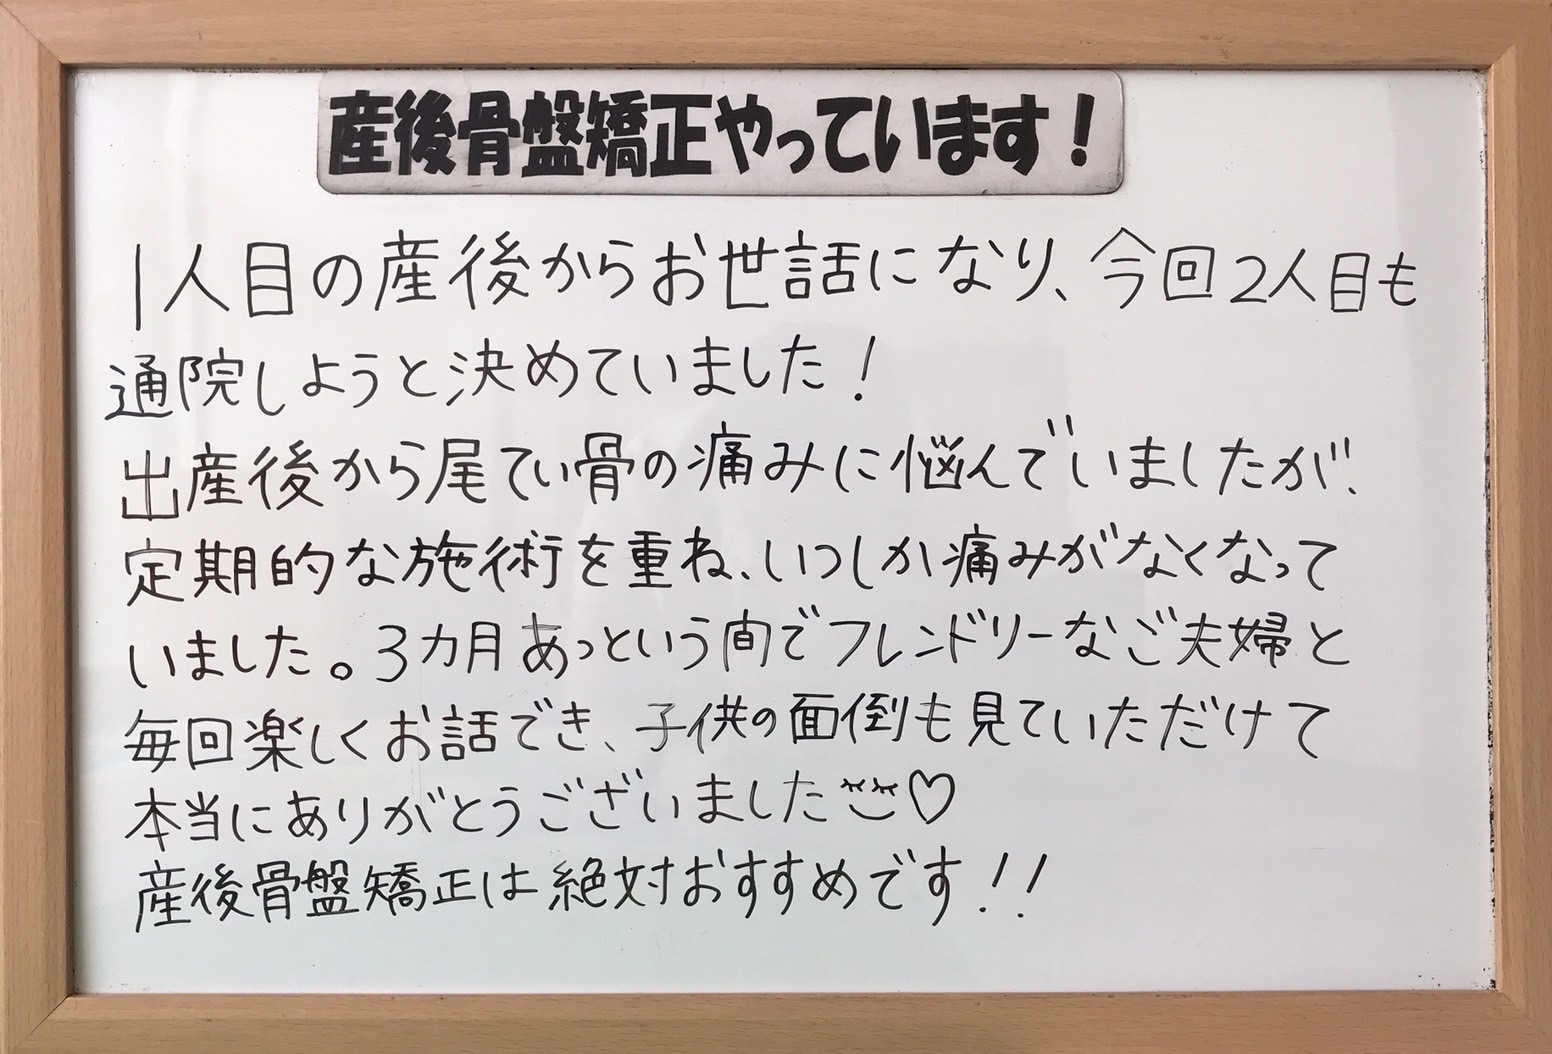 産後骨盤矯正やっています！
1人目の産後からお世話になり、今回2人目も
通院しようと決めていました！
出産後から尾てい骨の痛みに悩んでいましたが、
定期的な施術を重ね、いつしか痛みがなくなって
いました。3カ月あっという間でフレンドリーなご夫婦と
毎回楽しくお話でき、子供の面倒も見ていただけて
本当にありがとうございました♡
産後骨盤矯正は絶対おすすめです！！